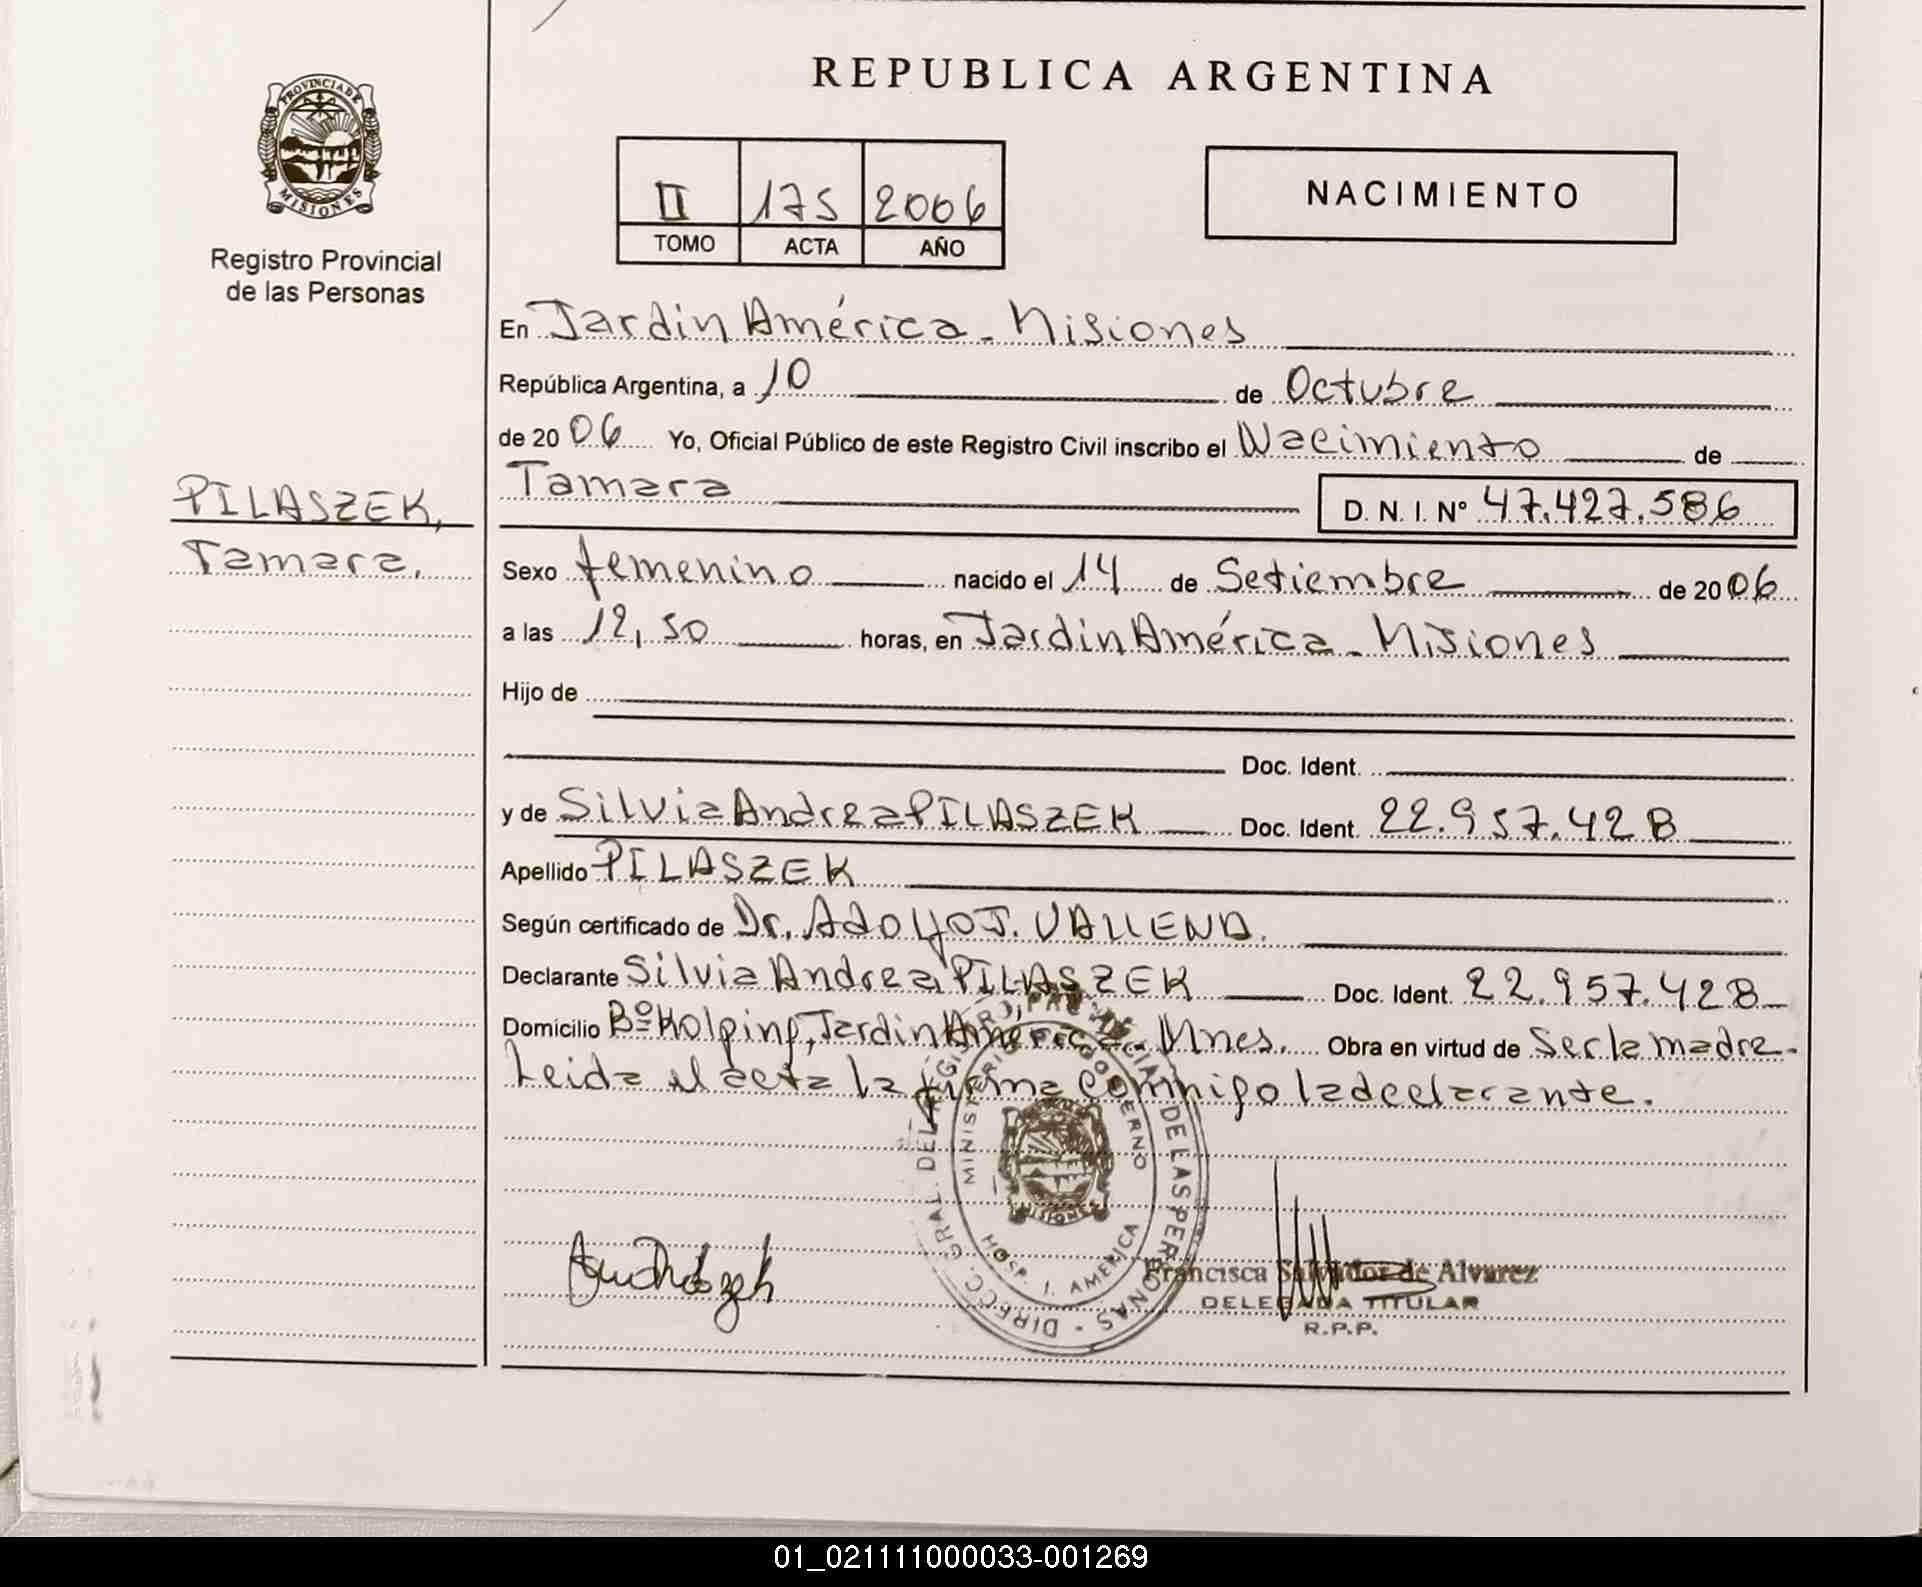 REPUBLICA ARGENTINA
PROVINCIA DE
MISIONES
Registro Provincial
de las Personas
II 175 2006
TOMO ACTA AÑO
NACIMIENTO
En Jardin América - Misiones
República Argentina, a 10 de Octubre
de 2006 Yo, Oficial Público de este Registro Civil inscribo el Nacimiento de
PILASZEK,
Tamara.
Tamara D. N. I. Nº 47.427.586
Sexo femenino nacido el 14 de Setiembre de 2006
a las 12,50 horas, en Jardin América - Misiones
Hijo de
Doc. Ident.
y de Silvia Andrea PILASZEK Doc. Ident. 22.957.428
Apellido PILASZEK
Según certificado de Dr. Adolfo J.
Declarante Silvia Andrea PILASZEK Doc. Ident. 22.957.428
Domicilio Bº Kolping, Jardin América - Mnes. Obra en virtud de Ser la madre -
Leida el acta la firma conmigo la declarante.
DIRECC. GRAL. DEL REGISTRO PROVINCIAL DE LAS PERSONAS -
MINISTERIO DE GOBIERNO
MISIONES
HOSP. J. AMERICA
Francisca Salvador de Alvarez
DELEGADA TITULAR
R.P.P.
01_021111000033-001269